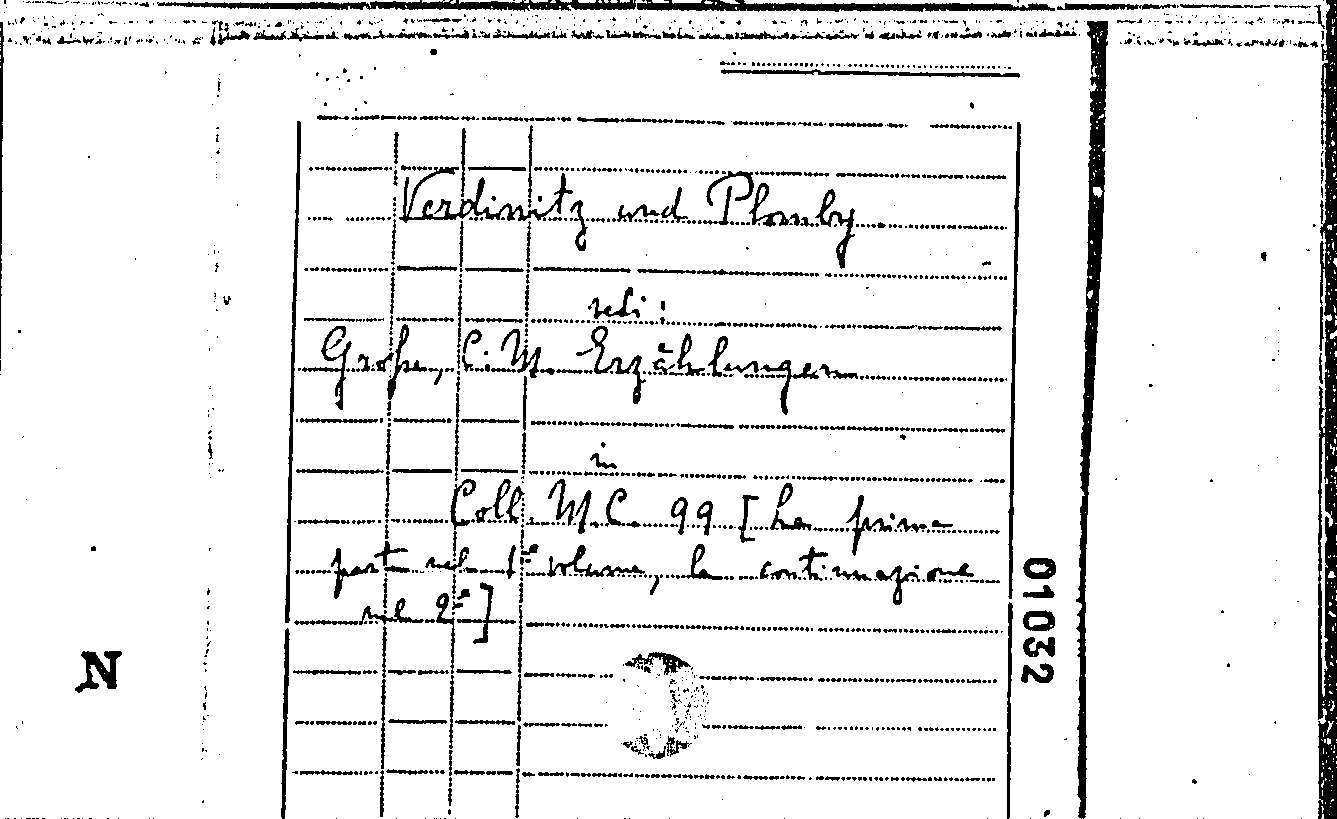 Verdinitz und Plomby
vedi:
Große, C. M. Erzählungen
in
Coll. M.C. 99 [La prima
parte nel 1º volume, la continuazione
nel 2º]
01032
N